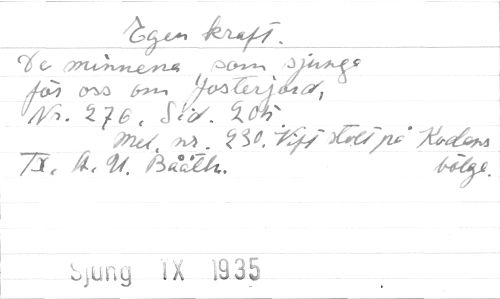 Egen kraft.
De minnena som sjunga
för oss om fosterjord,
Nr. 276. Sid. 205.
Mel. nr. 230. Vift stolt på Kodans
Tx. A. U. Bååth. bölge.
Sjung IX 1935